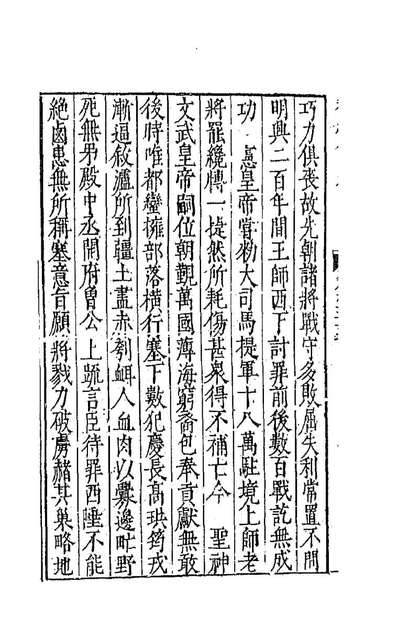 巧力俱喪故先朝諸將戰守多敗屢失利常置不問
明興二百年間王師西下討罪前後數百戰訖無成
功 憲皇帝嘗勑大司馬提軍十八萬駐境上師老
將罷纔博一捷然所耗傷甚衆得不補亡今 聖神
文武皇帝嗣位朝覲萬國薄海窮裔包奉貢獻無敢
後時唯都蠻擁部落橫行塞下數犯慶長高珙筠戎
漸逼敘瀘所到疆土盡赤刳衈人血肉以釁邊甿野
死無弔殿中丞開府曾公上疏言臣待罪西陲不能
絶鹵患無所稱塞意旨願將戮力破虜赭其巢略地